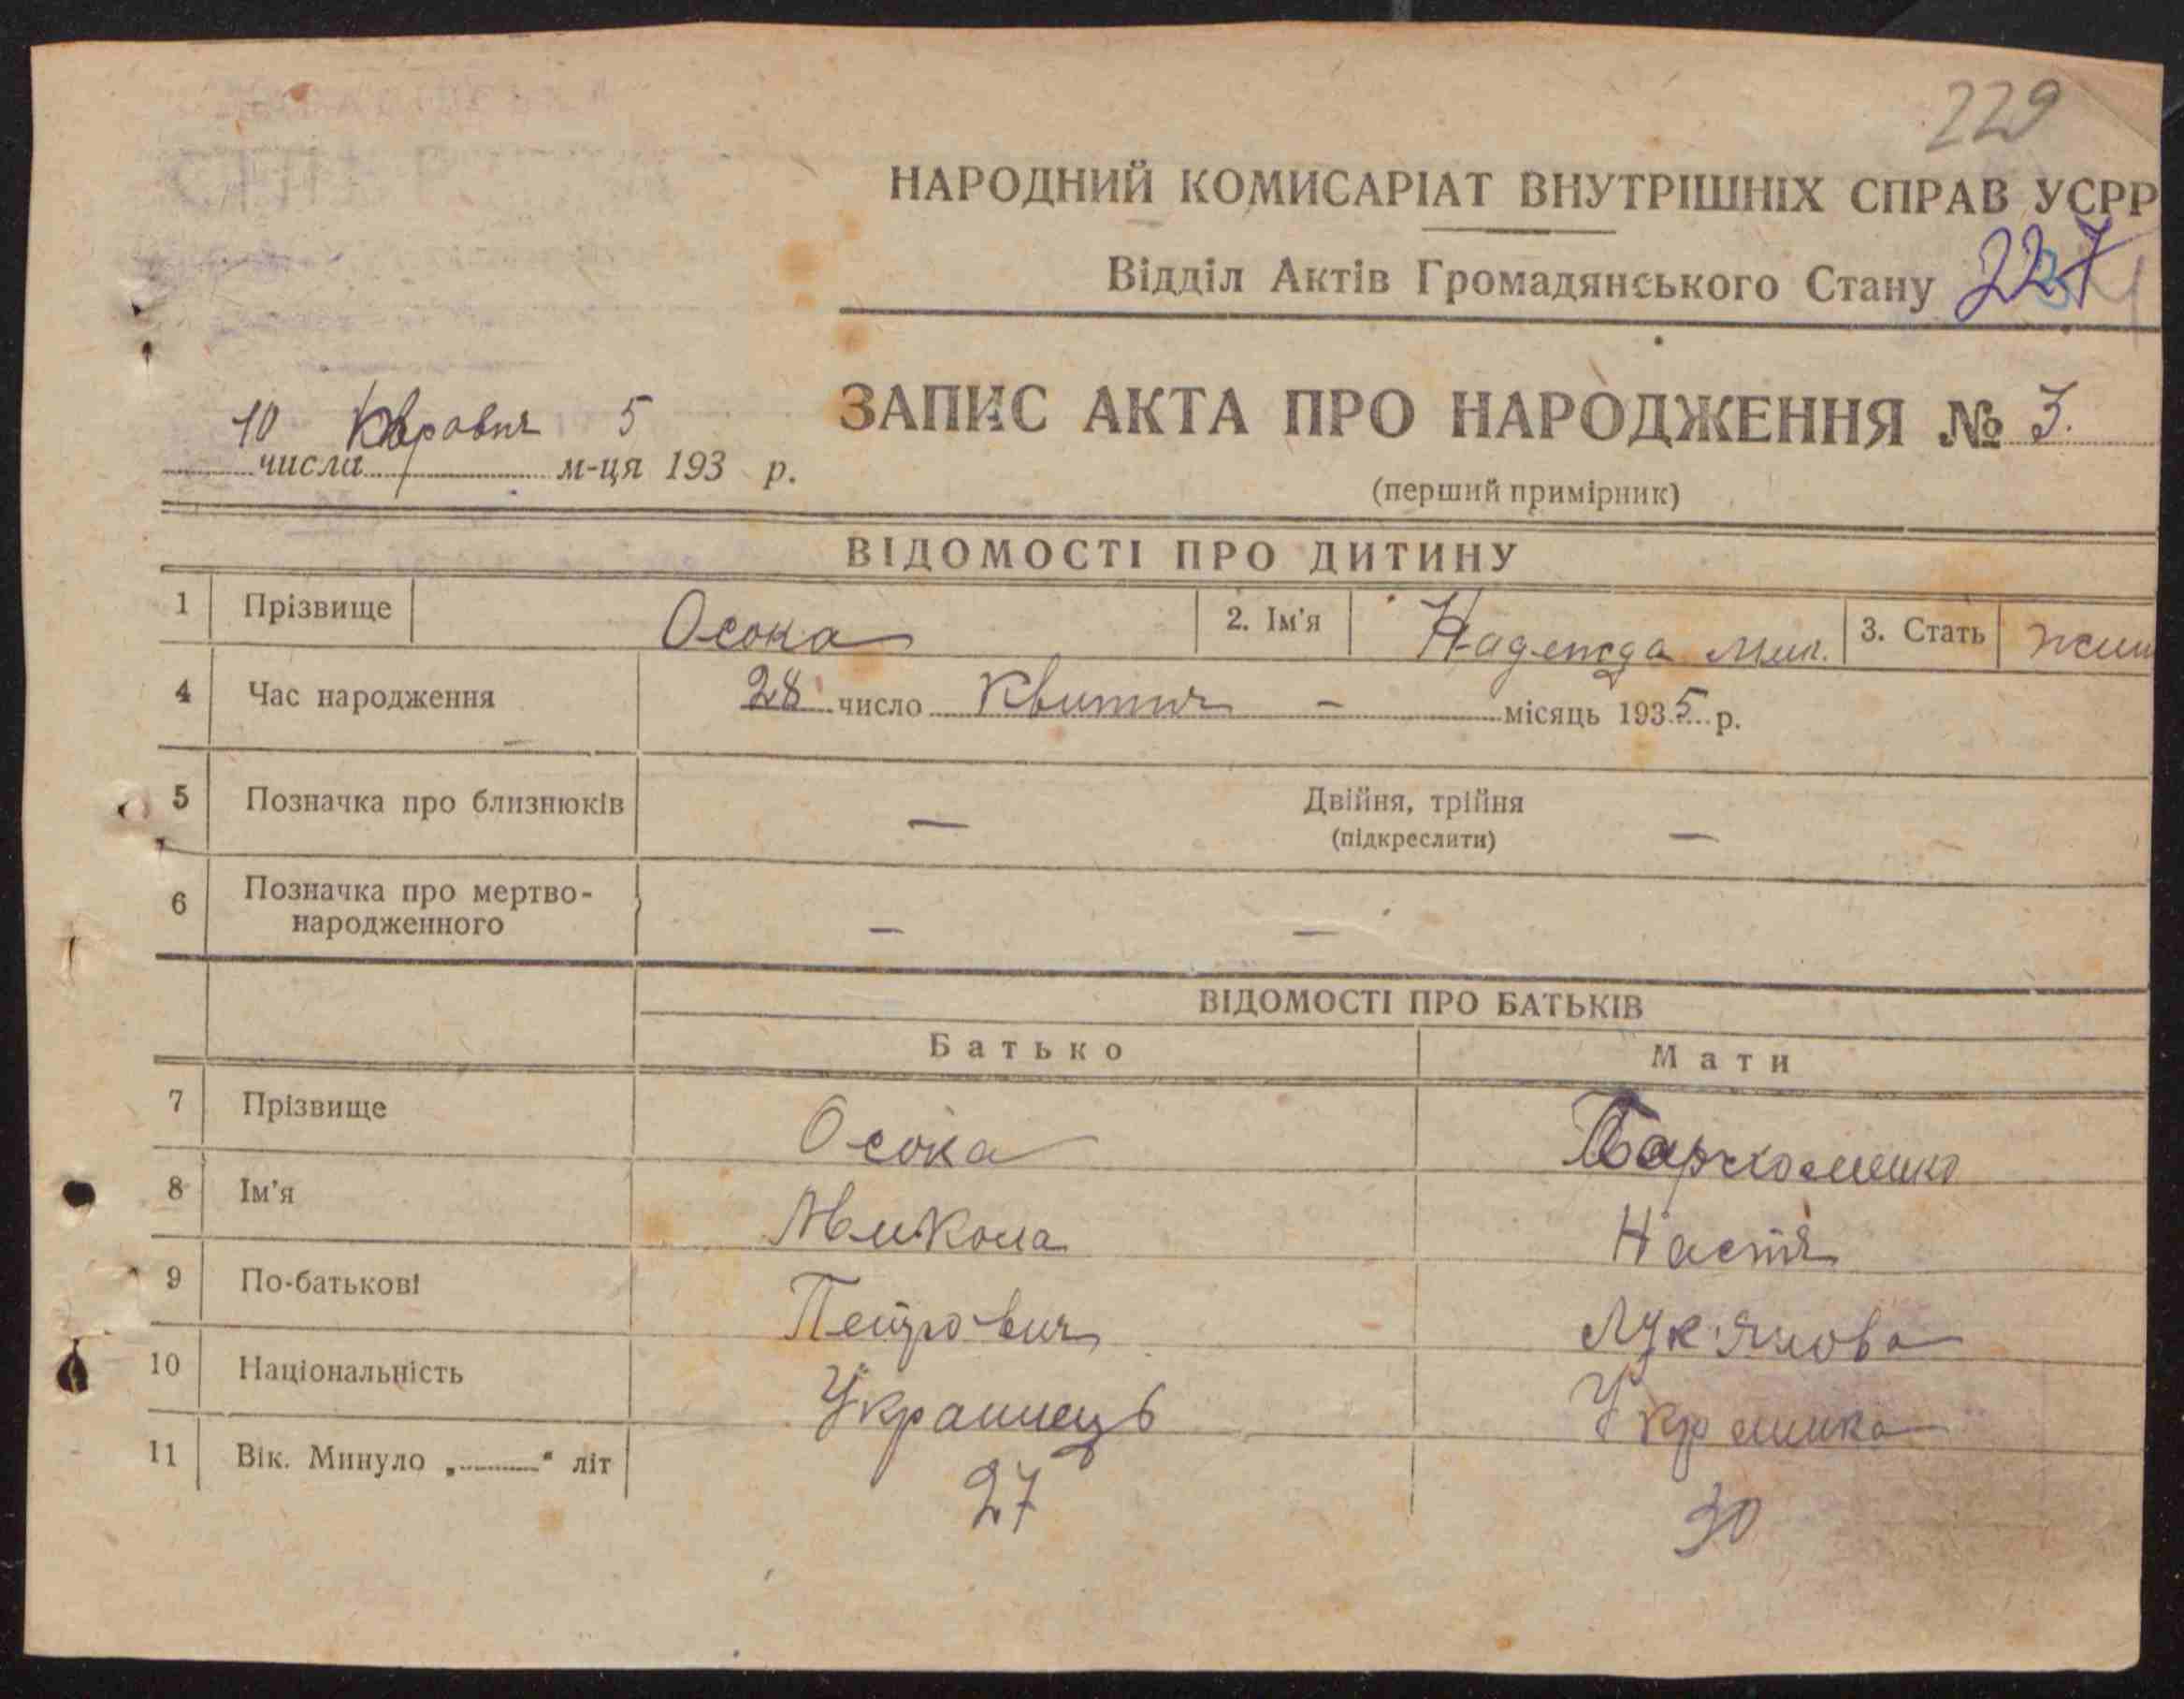 229
НАРОДНИЙ КОМИСАРІАТ ВНУТРІШНІХ СПРАВ УСРР
Відділ Актів Громадянського Стану 227
ЗАПИС АКТА ПРО НАРОДЖЕННЯ № 3.
(перший примірник)
10 числа м-ця 193 5 р.
ВІДОМОСТІ ПРО ДИТИНУ
1 Прізвище Осока 2. Ім'я Надежда Мик. 3. Стать жин
4 Час народження 28 число Квитня – місяць 1935 р.
5 Позначка про близнюків — Двійня, трійня —
(підкреслити)
6 Позначка про мертво-
народженного — —
ВІДОМОСТІ ПРО БАТЬКІВ
Батько Мати
7 Прізвище Осока Пархоменко
8 Ім'я Микола Настя
9 По-батькові Петрович Лук'янова
10 Національність Украинець Украинка
11 Вік. Минуло „ “ літ 27 30